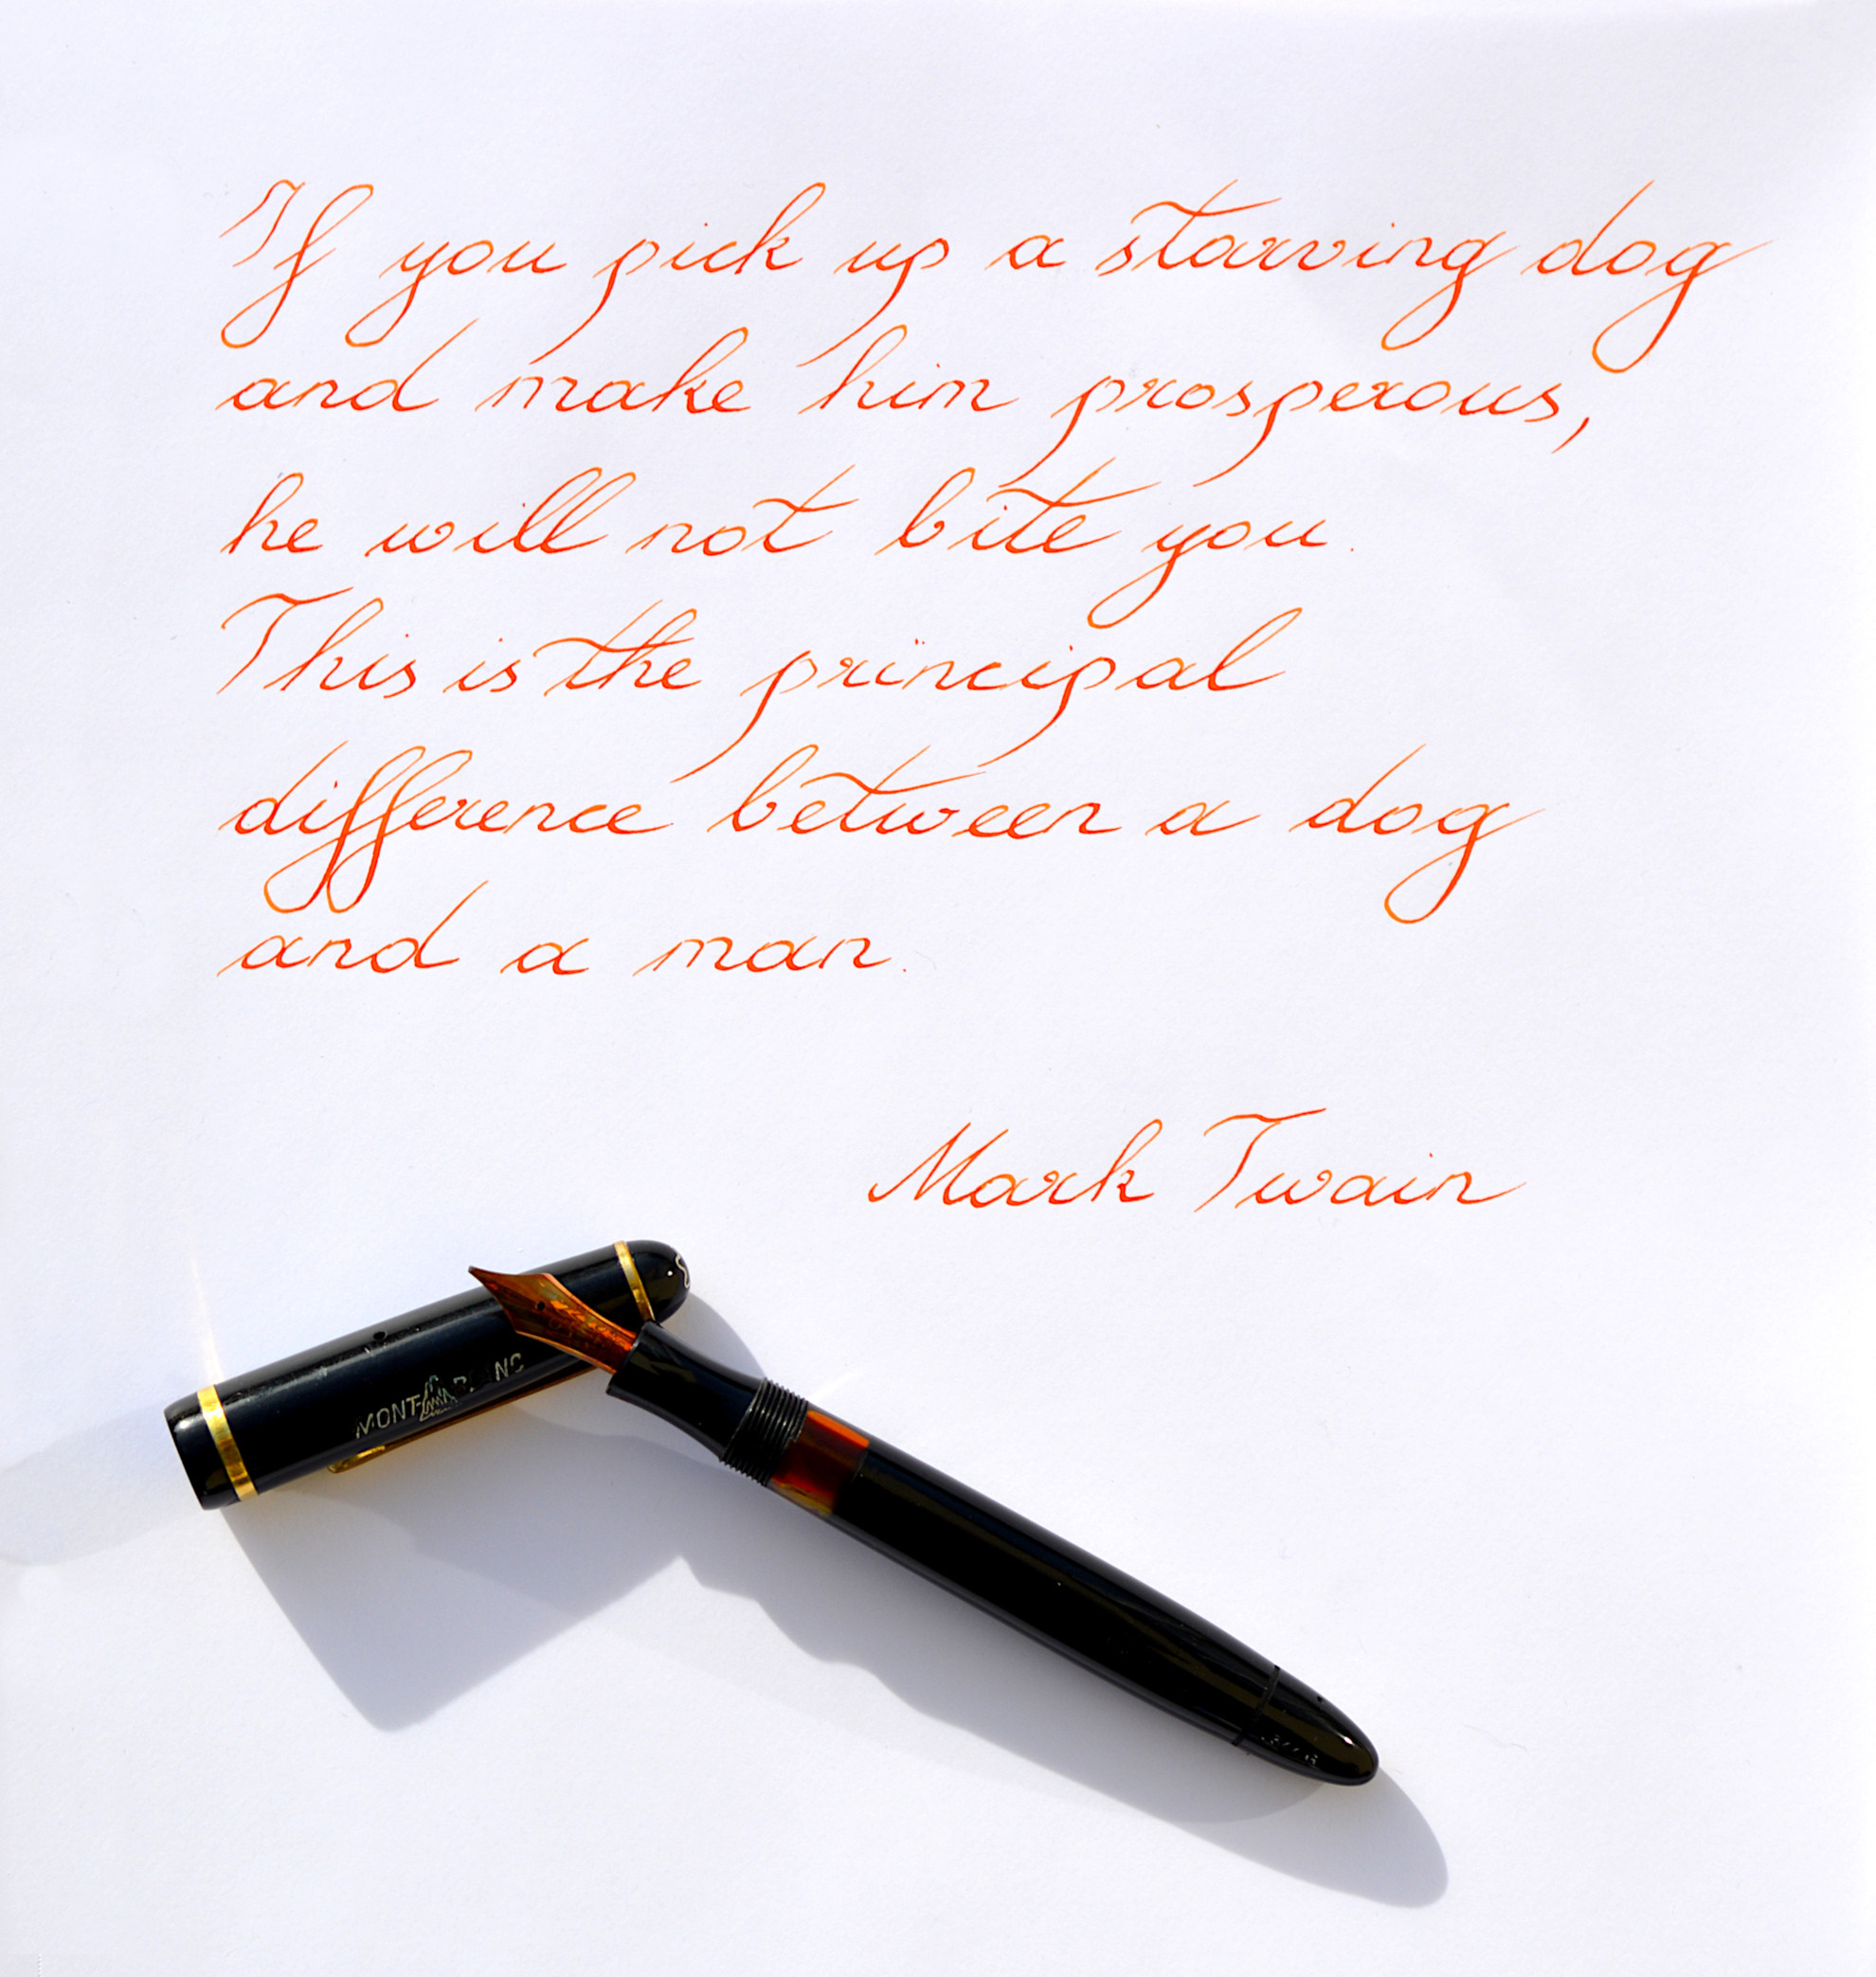 If you pick up a starving dog
and make him prosperous,
he will not bite you.
This is the principal
difference between a dog
and a man.
Mark Twain
MONTBLANC